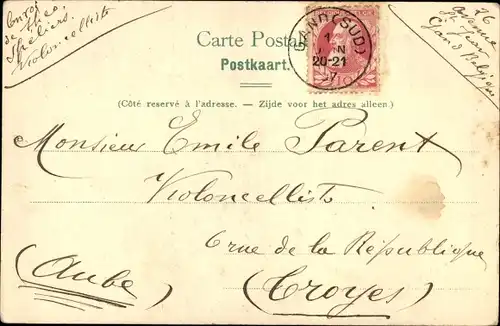 Envoi
de Theo.
Speliers
Violoncelliste
Carte Postale
Postkaart.
GAND (SUD)
1
20-21
7
10
76
Avenue
St Jean
Gand Belgique
(Côté reservé à l'adresse. — Zijde voor het adres alleen.)
Monsieur Emile Parent
Violoncelliste
6 rue de la République
(Aube) (Troyes)